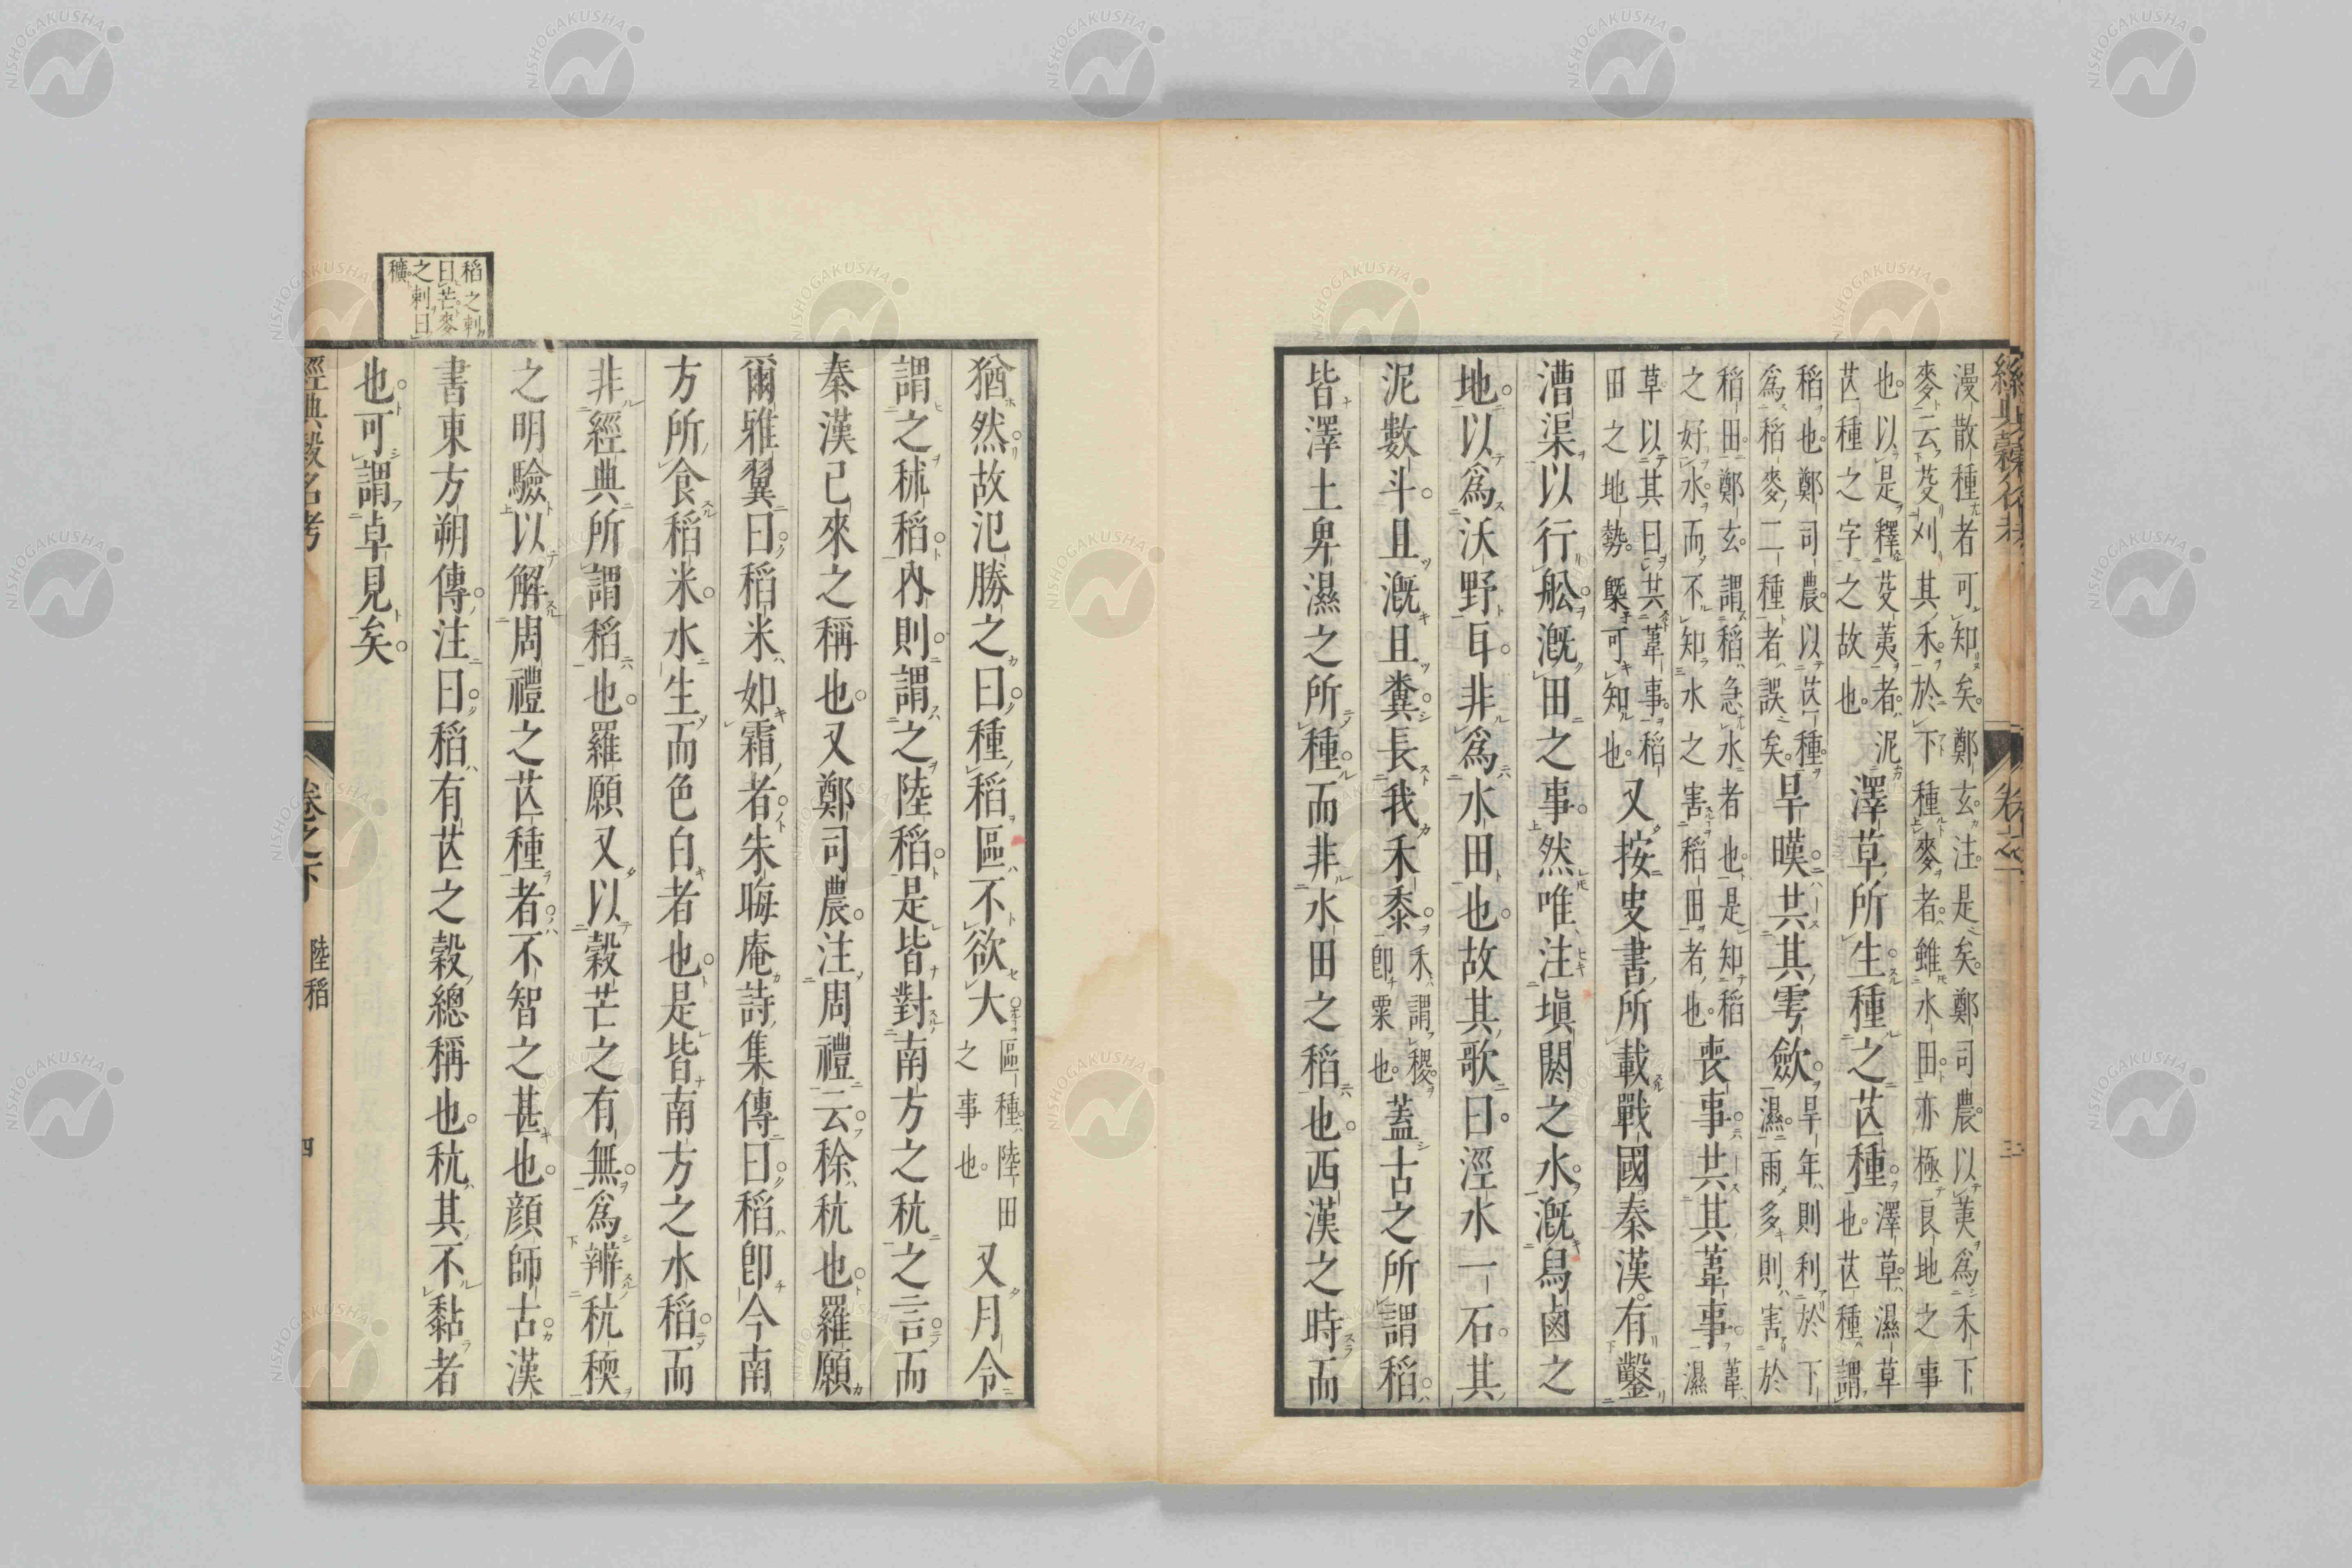 漫散種者可知矣鄭玄注是矣鄭司農以荑爲禾下
麥云芟刈其禾於下種麥者雖水田亦極良地之事
也以是釋芟荑者泥澤草所生種之芒種也澤草濕草
芒種之字之故也芒種謂
稻也鄭司農以芒種旱暵共其雩斂旱年則利於下
爲稻麥二種者誤矣濕雨多則害於
稻田鄭玄謂稻急水者也是知稻喪事共其葦事葦
之好水而不知水之害稻田者也濕
草以其曰共葦事稻又按史書所載戰國秦漢有鑿
田之地勢槩可知也
漕渠以行舩漑田之事然唯注塡閼之水漑舃鹵之
地以爲沃野耳非爲水田也故其歌曰涇水一石其
泥數斗且漑且糞長我禾黍禾謂稷卽粟也蓋古之所謂稻
皆澤土卑濕之所種而非水田之稻也西漢之時而
猶然故氾勝之曰種稻區不欲大區種陸田之事也又月令
謂之秫稻內則謂之陸稻是皆對南方之秔之言而
秦漢已來之稱也又鄭司農注周禮云稌秔也羅願
爾雅翼曰稻米如霜者朱晦庵詩集傳曰稻卽今南
方所食稻米水生而色白者也是皆南方之水稻而
非經典所謂稻也羅願又以穀芒之有無爲辨秔稬
之明驗以解周禮之芒種者不智之甚也顔師古漢
書東方朔傳注曰稻有芒之穀總稱也秔其不黏者
也可謂卓見矣
稻之刺
曰芒麥
之刺曰
穬
經典穀名考
卷之下
陸稻
四